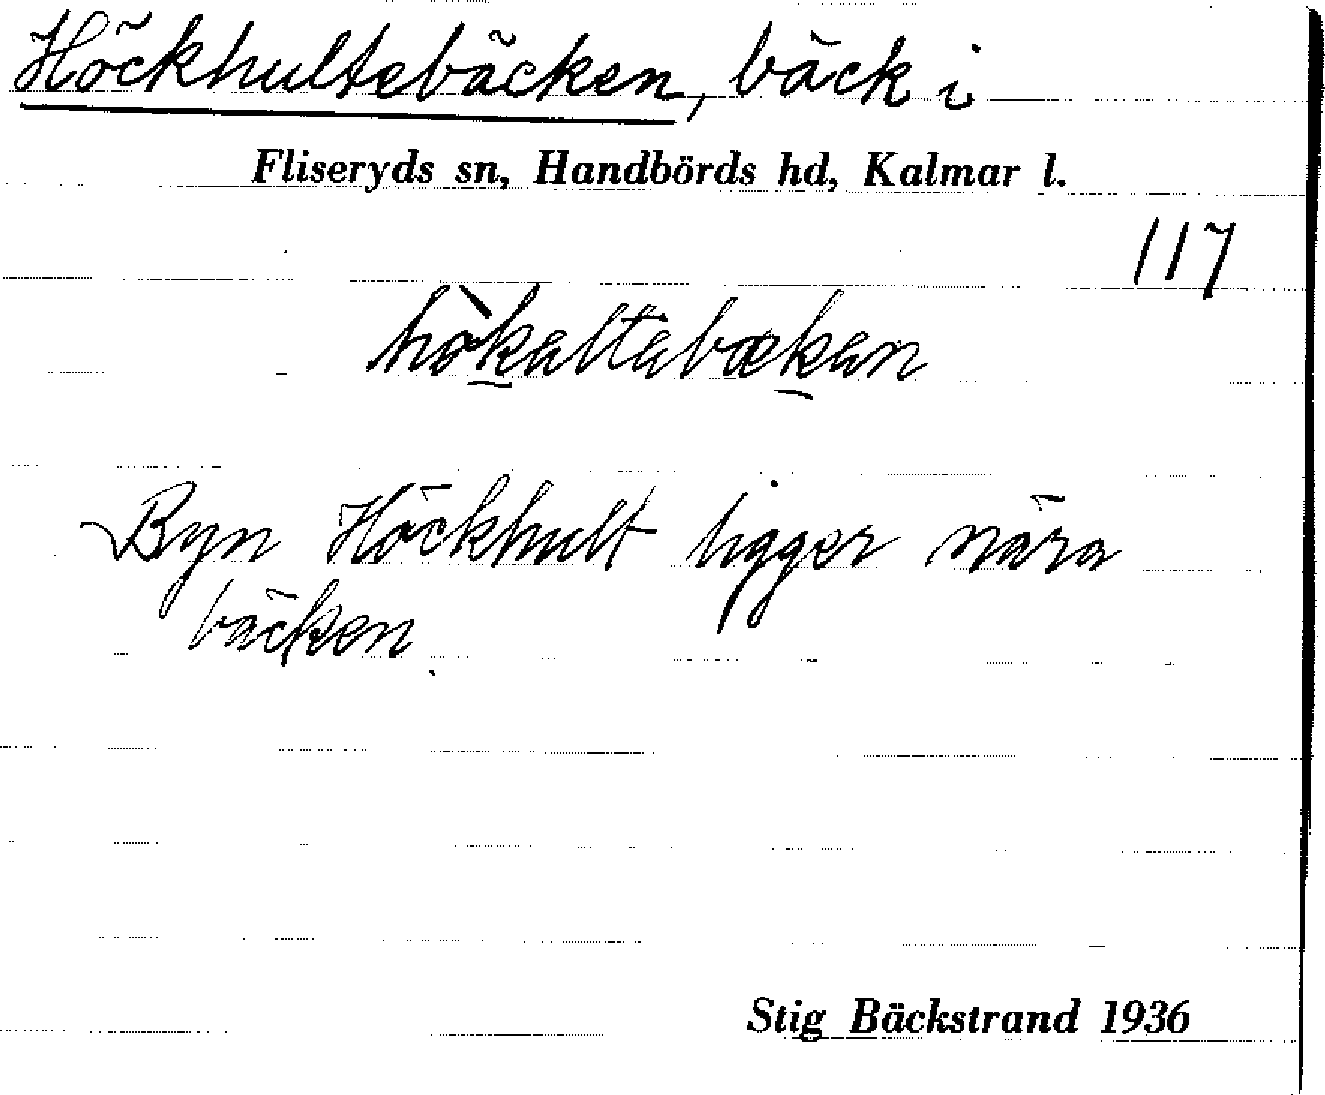 Höckhultebäcken, bäck i
Fliseryds sn, Handbörds hd, Kalmar l.
117
hò̀k̲altabæk̲an
Byn Höckhult ligger nära
bäcken.
Stig Bäckstrand 1936